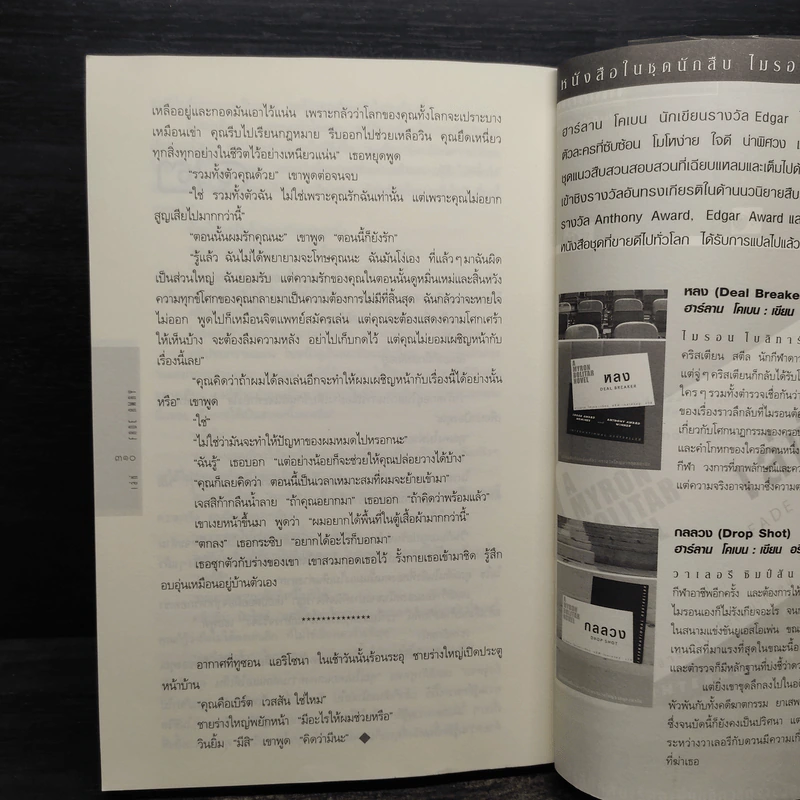 เหลืออยู่และกอดมันเอาไว้แน่น เพราะกลัวว่าโลกของคุณทั้งโลกจะเปราะบาง
เหมือนเข่า คุณรีบไปเรียนกฎหมาย รีบออกไปช่วยเหลือวิน คุณยึดเหนี่ยว
ทุกสิ่งทุกอย่างในชีวิตไว้อย่างเหนียวแน่น” เธอหยุดพูด
“รวมทั้งตัวคุณด้วย” เขาพูดต่อจนจบ
“ใช่ รวมทั้งตัวฉัน ไม่ใช่เพราะคุณรักฉันเท่านั้น แต่เพราะคุณไม่อยาก
สูญเสียไปมากกว่านี้”
“ตอนนั้นผมรักคุณนะ” เขาพูด “ตอนนี้ก็ยังรัก”
“รู้แล้ว ฉันไม่ได้พยายามจะโทษคุณนะ ฉันมันโง่เอง ที่แล้วๆมาฉันผิด
เป็นส่วนใหญ่ ฉันยอมรับ แต่ความรักของคุณในตอนนั้นดูหมิ่นเหม่และสิ้นหวัง
ความทุกข์โศกของคุณกลายมาเป็นความต้องการไม่มีที่สิ้นสุด ฉันกลัวว่าจะหายใจ
ไม่ออก พูดไปก็เหมือนจิตแพทย์สมัครเล่น แต่คุณจะต้องแสดงความโศกเศร้า
ให้เห็นบ้าง จะต้องลืมความหลัง อย่าไปเก็บกดไว้ แต่คุณไม่ยอมเผชิญหน้ากับ
เรื่องนี้เลย”
“คุณคิดว่าถ้าผมได้ลงเล่นอีกจะทำให้ผมเผชิญหน้ากับเรื่องนี้ได้อย่างนั้น
หรือ” เขาพูด
“ใช่”
“ไม่ใช่ว่ามันจะทำให้ปัญหาของผมหมดไปหรอกนะ”
“ฉันรู้” เธอบอก “แต่อย่างน้อยก็จะช่วยให้คุณปล่อยวางได้บ้าง”
“คุณก็เลยคิดว่า ตอนนี้เป็นเวลาเหมาะสมที่ผมจะย้ายเข้ามา”
เจสสิก้ากลืนน้ำลาย “ถ้าคุณอยากมา” เธอบอก “ถ้าคิดว่าพร้อมแล้ว”
เขาเงยหน้าขึ้นมา พูดว่า “ผมอยากได้พื้นที่ในตู้เสื้อผ้ามากกว่านี้”
“ตกลง” เธอกระซิบ “อยากได้อะไรก็บอกมา”
เธอซุกตัวกับร่างของเขา เขาสวมกอดเธอไว้ รั้งกายเธอเข้ามาชิด รู้สึก
อบอุ่นเหมือนอยู่บ้านตัวเอง
**************
อากาศที่ทูซอน แอริโซนา ในเช้าวันนั้นร้อนระอุ ชายร่างใหญ่เปิดประตู
หน้าบ้าน
“คุณคือเบิร์ต เวสสัน ใช่ไหม”
ชายร่างใหญ่พยักหน้า “มีอะไรให้ผมช่วยหรือ”
วินยิ้ม “มีสิ” เขาพูด “คิดว่ามีนะ” ◆
FADE AWAY
หนังสือในชุดนักสืบ ไมรอน
ฮาร์ลาน โคเบน นักเขียนรางวัล Edgar
ตัวละครที่ซับซ้อน โมโหง่าย ใจดี น่าพิศวง
ชุดแนวสืบสวนสอบสวนที่เฉียบแหลมและเต็มไปด้
เข้าชิงรางวัลอันทรงเกียรติในด้านนวนิยายสืบ
รางวัล Anthony Award, Edgar Award และ
หนังสือชุดที่ขายดีไปทั่วโลก ได้รับการแปลไปแล้ว
หลง (Deal Breake
ฮาร์ลาน โคเบน : เขียน
ไมรอน โบลิทาร์
คริสเตียน สตีล นักกีฬาดาว
แต่จู่ๆ คริสเตียนก็กลับได้รับโ
ใครๆ รวมทั้งตำรวจเชื่อกันว่า
ของเรื่องราวลึกลับที่ไมรอนต้อ
เกี่ยวกับโศกนาฏกรรมของครอบ
และคำโกหกของใครอีกคนหนึ่ง
กีฬา วงการที่ภาพลักษณ์และคว
แต่ความจริงอาจนำมาซึ่งความต
A MYRON BOLITAR NOVEL
หลง
DEAL BREAKER
กลลวง (Drop Shot)
ฮาร์ลาน โคเบน : เขียน
วาเลอรี ซิมป์สัน
กีฬาอาชีพอีกครั้ง และต้องการให้
ไมรอนเองก็ไม่รังเกียจอะไร จน
ในสนามแข่งขันยูเอสโอเพ่น ขณะ
เทนนิสที่มาแรงที่สุดในขณะนี้อ
และตำรวจก็มีหลักฐานที่บ่งชี้ว่าดว
แต่ยิ่งเขาขุดลึกลงไปในอดี
พัวพันกับทั้งคดีฆาตกรรม ยาเสพ
ซึ่งจนบัดนี้ก็ยังคงเป็นปริศนา แต่
ระหว่างวาเลอรีกับดวนมีความเกี่
ที่ฆ่าเธอ
กลลวง
DROP SHOT